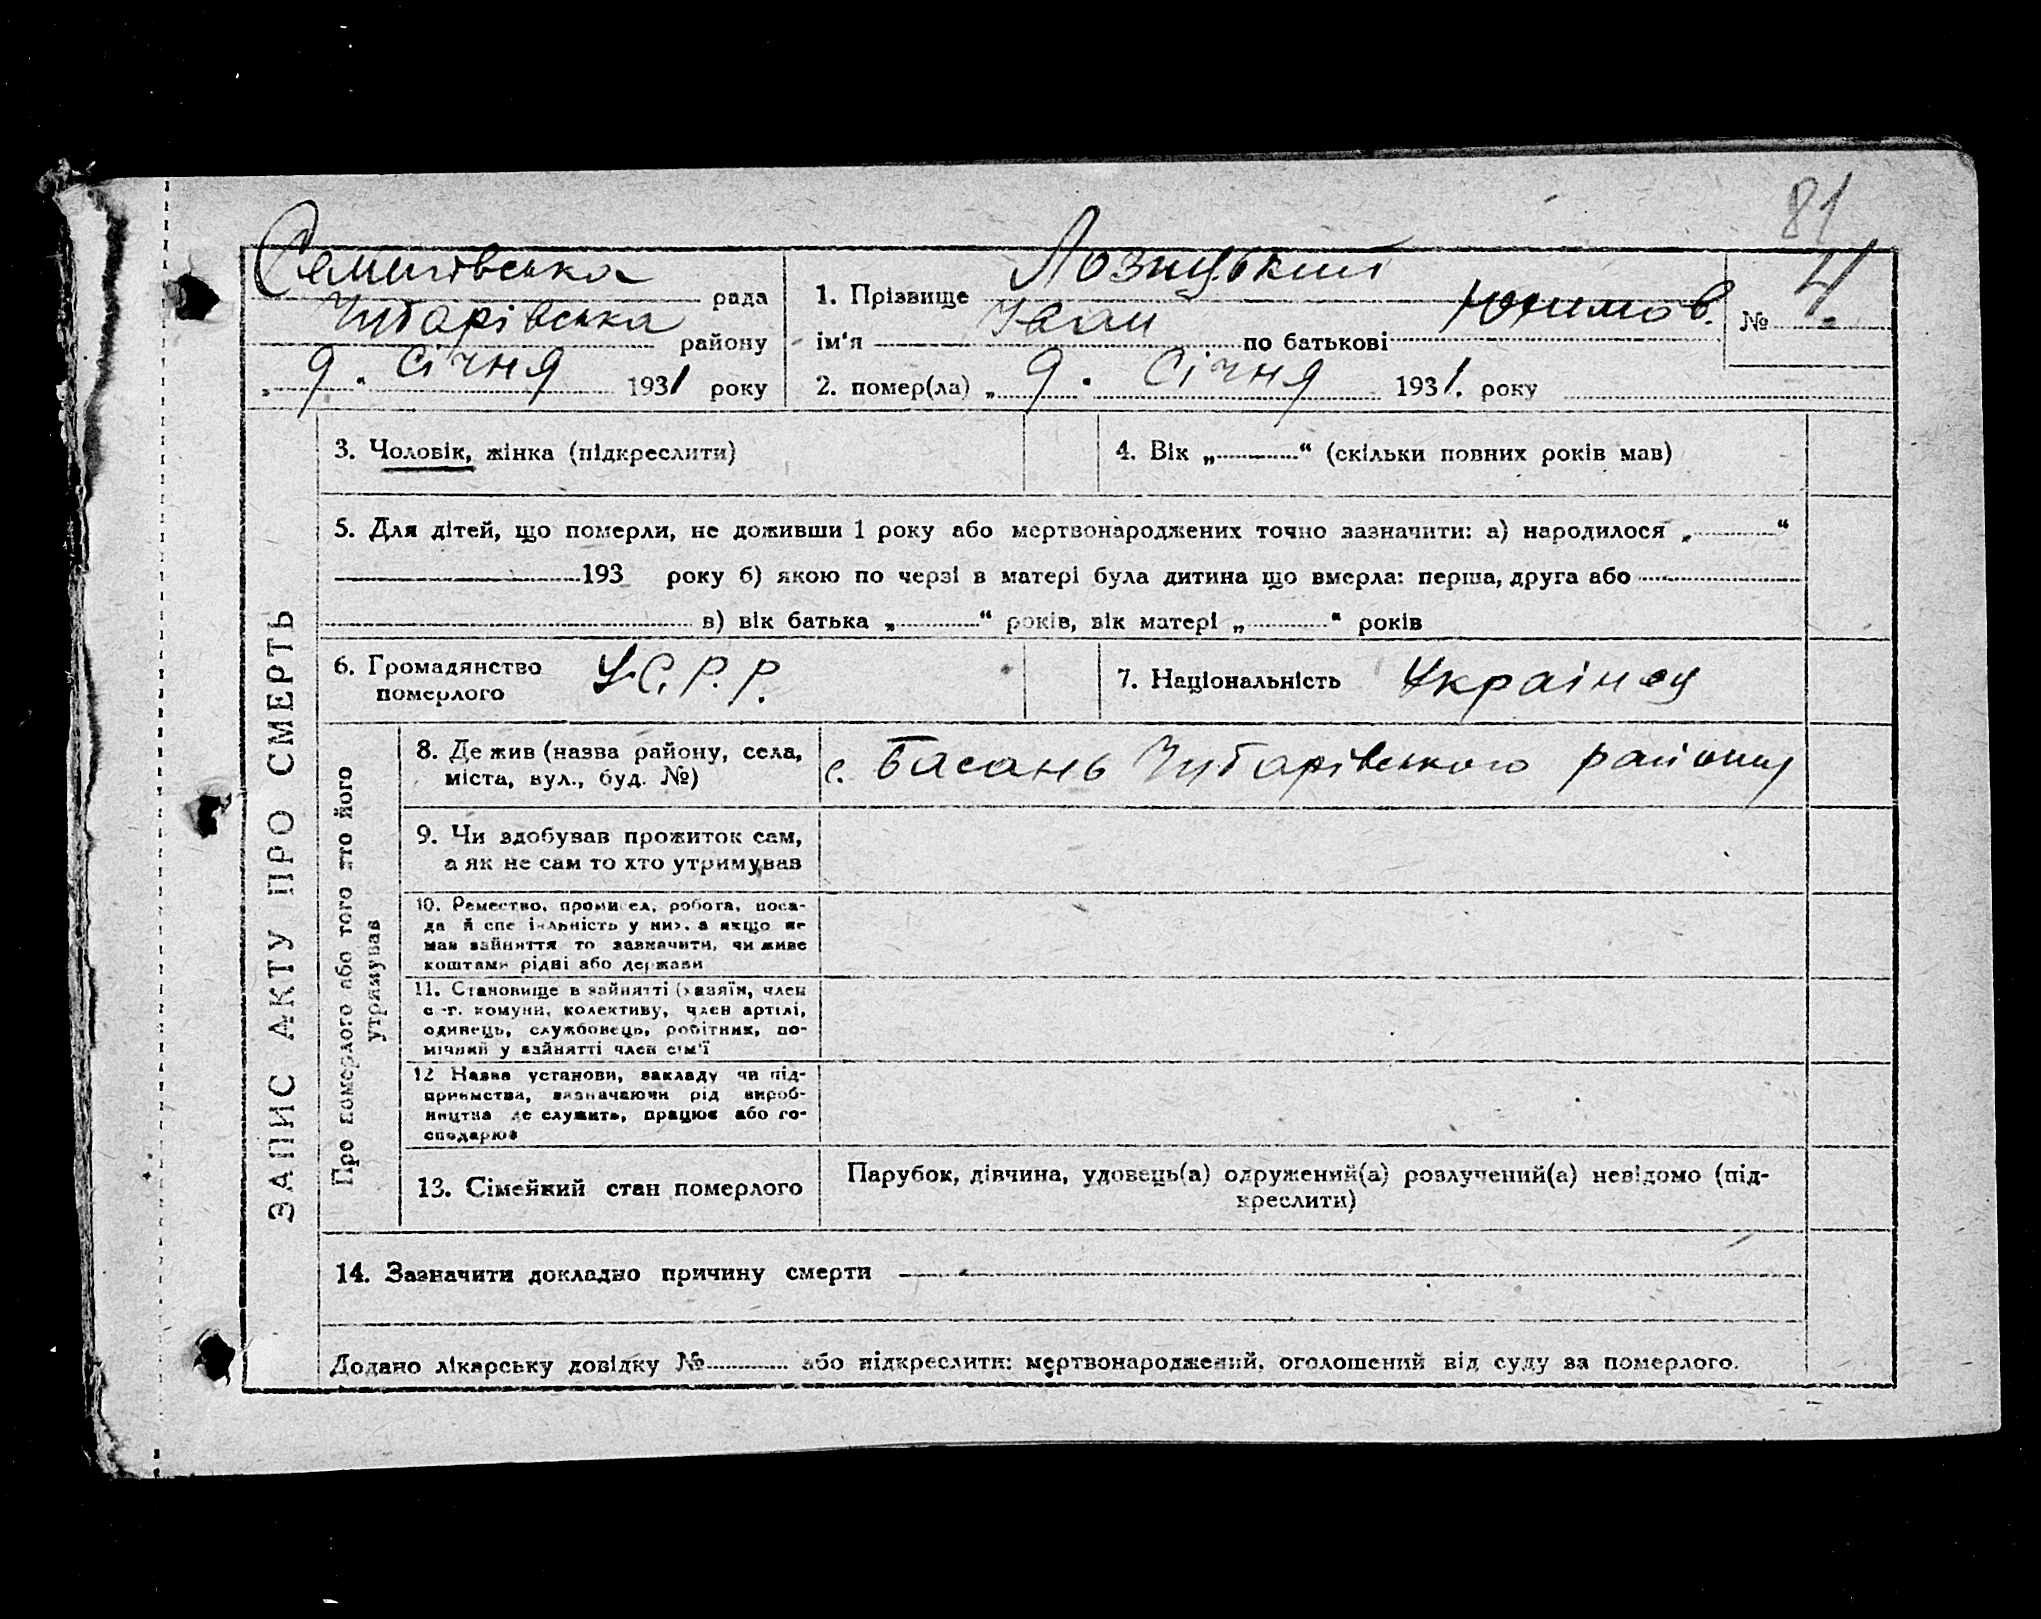 81
Семенівська рада
Чубарівська району
„ 9 . січня 1931 року
1. Прізвище Лозицький
ім'я Іван по батькові Юхимов.
№ 4.
2. помер(ла) „ 9 . Січня 1931. року
ЗАПИС АКТУ ПРО СМЕРТЬ
3. Чоловік, жінка (підкреслити)
4. Вік „ “ (скільки повних років мав)
5. Для дітей, що померли, не доживши 1 року або мертвонароджених точно зазначити: а) народилося „ “
193 року б) якою по черзі в матері була дитина що вмерла: перша, друга або
в) вік батька „ “ років, вік матері „ “ років
6. Громадянство
померлого
У.С.Р.Р.
7. Національність Українец
Про померлого або того хто його
утримував
8. Де жив (назва району, села,
міста, вул., буд. №)
с. Басань Чубарівського району
9. Чи здобував прожиток сам,
а як не сам то хто утримував
10. Ремество, промисел, робота, поса-
да й спеціяльність у них, а якщо не
мав зайняття то зазначити, чи живе
коштами рідні або держави
11. Становище в зайнятті (хазяїн, член
с.-г. комуни, колективу, член артілі,
одинець, службовець, робітник, по-
мічний у зайнятті член сім'ї
12 Назва установи, закладу чи під-
приємства, зазначаючи рід вироб-
ництва де служить, працює або го-
сподарює
13. Сімейний стан померлого
Парубок, дівчина, удовець(а) одружений(а) розлучений(а) невідомо (під-
креслити)
14. Зазначити докладно причину смерти
Додано лікарську довідку № або підкреслити: мертвонароджений, оголошений від суду за померлого.